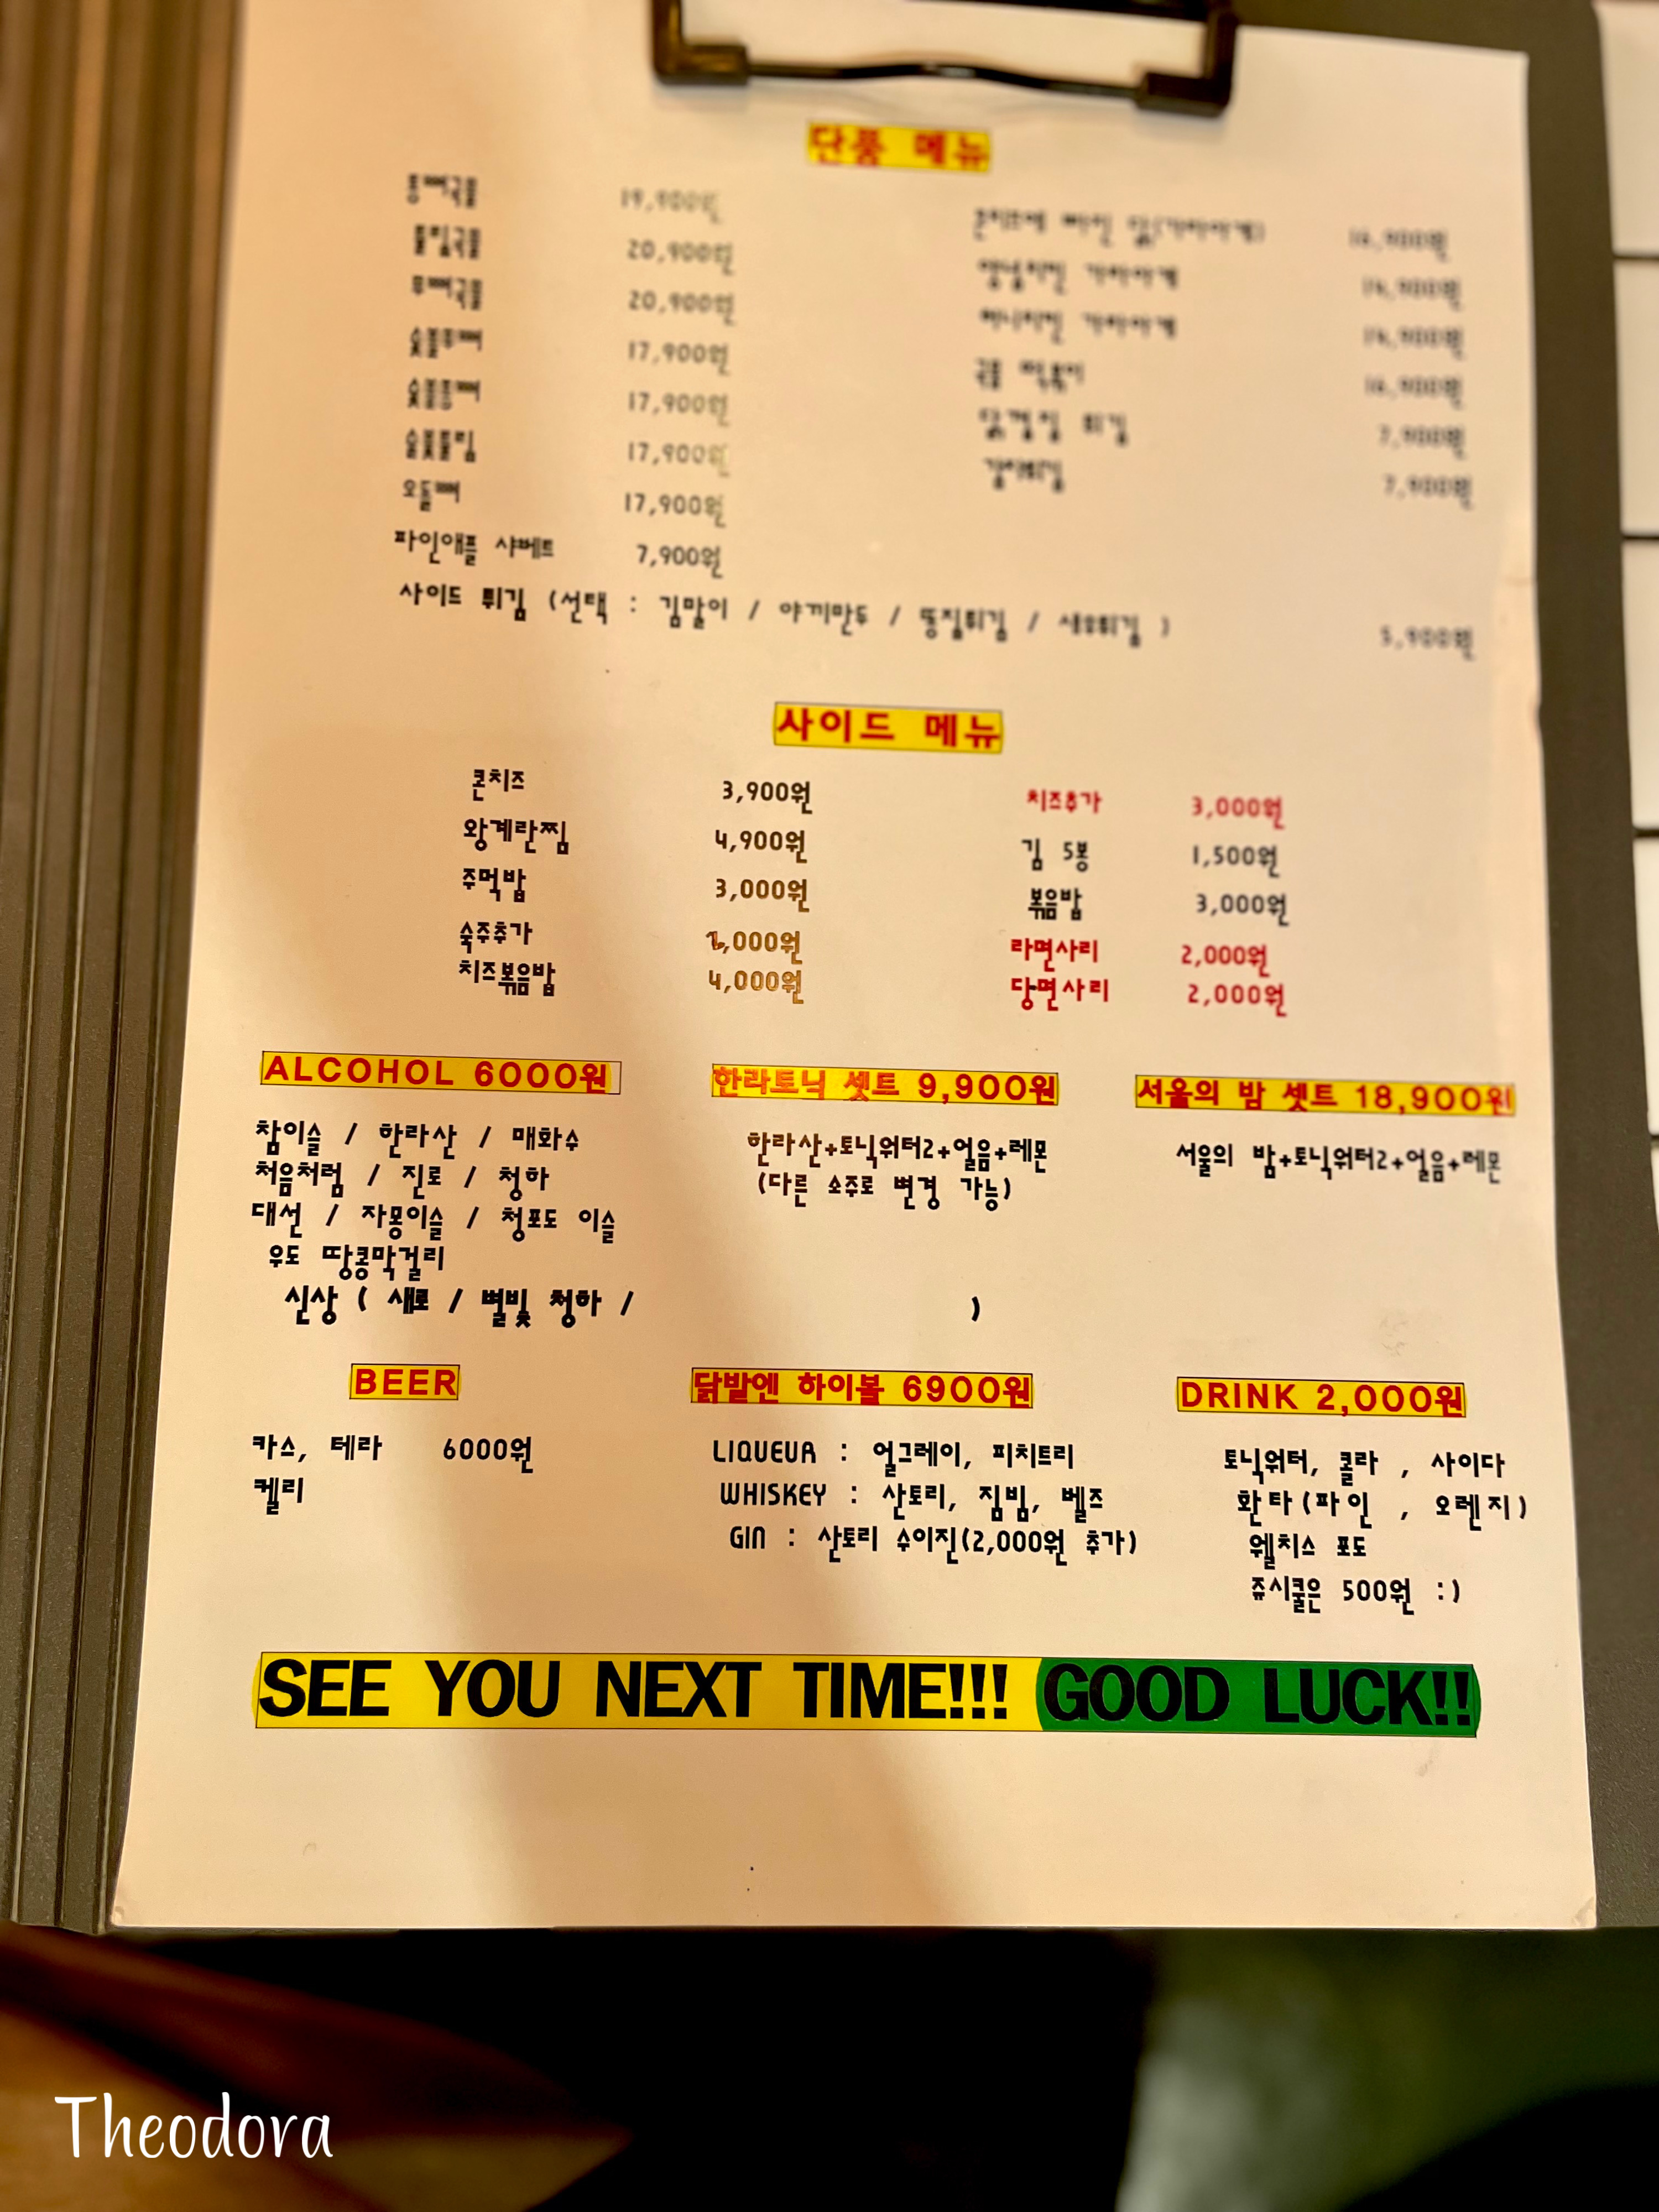 단품 메뉴
통뼈국물 19,900원
튤립국물 20,900원
무뼈국물 20,900원
숯불무뼈 17,900원
숯불통뼈 17,900원
숯불튤립 17,900원
오돌뼈 17,900원
파인애플 샤베트 7,900원
콘치즈에 빠진 닭(가라아게)
양념치킨 가라아게
허니치킨 가라아게
국물 떡볶이
닭껍질 튀김 7,900원
7,900원
사이드 튀김 (선택 : 김말이 / 야끼만두 / 똥집튀김 / 새우튀김 ) 5,900원
사이드 메뉴
콘치즈 3,900원
왕계란찜 4,900원
주먹밥 3,000원
숙주추가 ,000원
치즈볶음밥 4,000원
치즈추가 3,000원
김 5봉 1,500원
볶음밥 3,000원
라면사리 2,000원
당면사리 2,000원
ALCOHOL 6000원
참이슬 / 한라산 / 매화수
처음처럼 / 진로 / 청하
대선 / 자몽이슬 / 청포도 이슬
우도 땅콩막걸리
신상 ( 새로 / 별빛 청하 / )
한라토닉 셋트 9,900원
한라산+토닉워터2+얼음+레몬
(다른 소주로 변경 가능)
서울의 밤 셋트 18,900원
서울의 밤+토닉워터2+얼음+레몬
BEER
카스, 테라 6000원
켈리
닭발엔 하이볼 6900원
LIQUEUR : 얼그레이, 피치트리
WHISKEY : 산토리, 짐빔, 벨즈
GIN : 산토리 수이진(2,000원 추가)
DRINK 2,000원
토닉워터, 콜라 , 사이다
환타(파인 , 오렌지)
웰치스 포도
쥬시쿨은 500원 :)
SEE YOU NEXT TIME!!! GOOD LUCK!!
Theodora